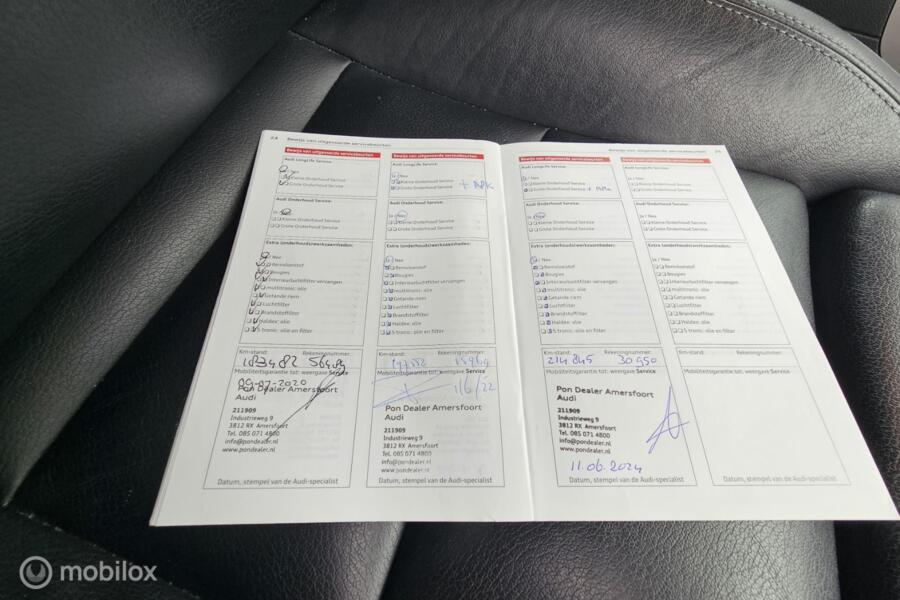 24 Bewijs van uitgevoerde servicebeurten
Bewijs van uitgevoerde servicebeurten
Audi LongLife Service:
Ja / Nee
Kleine Onderhoud Service
Grote Onderhoud Service
Audi Onderhoud Service:
Ja / Nee
Kleine Onderhoud Service
Grote Onderhoud Service
Extra (onderhouds)werkzaamheden:
Ja / Nee
Remvloeistof
Bougies
Interieurluchtfilter vervangen
multitronic: olie
Getande riem
Luchtfilter
Brandstoffilter
Haldex: olie
S tronic: olie en filter
Km-stand: Rekeningnummer:
183482
Mobiliteitsgarantie tot: weergave Service
09-07-2020
Pon Dealer Amersfoort
Audi
211909
Industrieweg 9
3812 RX Amersfoort
Tel. 085 071 4800
info@pondealer.nl
www.pondealer.nl
Datum, stempel van de Audi-specialist
Bewijs van uitgevoerde servicebeurten
Audi LongLife Service:
Ja / Nee
Kleine Onderhoud Service
Grote Onderhoud Service + APK
Audi Onderhoud Service:
Ja / Nee
Kleine Onderhoud Service
Grote Onderhoud Service
Extra (onderhouds)werkzaamheden:
Ja / Nee
Remvloeistof
Bougies
Interieurluchtfilter vervangen
multitronic: olie
Getande riem
Luchtfilter
Brandstoffilter
Haldex: olie
S tronic: olie en filter
Km-stand: Rekeningnummer:
Mobiliteitsgarantie tot: weergave Service
1/6/22
Pon Dealer Amersfoort
Audi
211909
Industrieweg 9
3812 RX Amersfoort
Tel. 085 071 4800
info@pondealer.nl
www.pondealer.nl
Datum, stempel van de Audi-specialist
Bewijs van uitgevoerde servicebeurten 25
Bewijs van uitgevoerde servicebeurten
Audi LongLife Service:
Ja / Nee
Kleine Onderhoud Service
Grote Onderhoud Service + APK
Audi Onderhoud Service:
Ja / Nee
Kleine Onderhoud Service
Grote Onderhoud Service
Extra (onderhouds)werkzaamheden:
Ja / Nee
Remvloeistof
Bougies
Interieurluchtfilter vervangen
multitronic: olie
Getande riem
Luchtfilter
Brandstoffilter
Haldex: olie
S tronic: olie en filter
Km-stand: Rekeningnummer:
214845 30950
Mobiliteitsgarantie tot: weergave Service
Pon Dealer Amersfoort
Audi
211909
Industrieweg 9
3812 RX Amersfoort
Tel. 085 071 4800
info@pondealer.nl
www.pondealer.nl
11.06.2024
Datum, stempel van de Audi-specialist
Bewijs van uitgevoerde servicebeurten
Audi LongLife Service:
Ja / Nee
Kleine Onderhoud Service
Grote Onderhoud Service
Audi Onderhoud Service:
Ja / Nee
Kleine Onderhoud Service
Grote Onderhoud Service
Extra (onderhouds)werkzaamheden:
Ja / Nee
Remvloeistof
Bougies
Interieurluchtfilter vervangen
multitronic: olie
Getande riem
Luchtfilter
Brandstoffilter
Haldex: olie
S tronic: olie en filter
Km-stand: Rekeningnummer:
Mobiliteitsgarantie tot: weergave Service
Datum, stempel van de Audi-specialist
mobilox